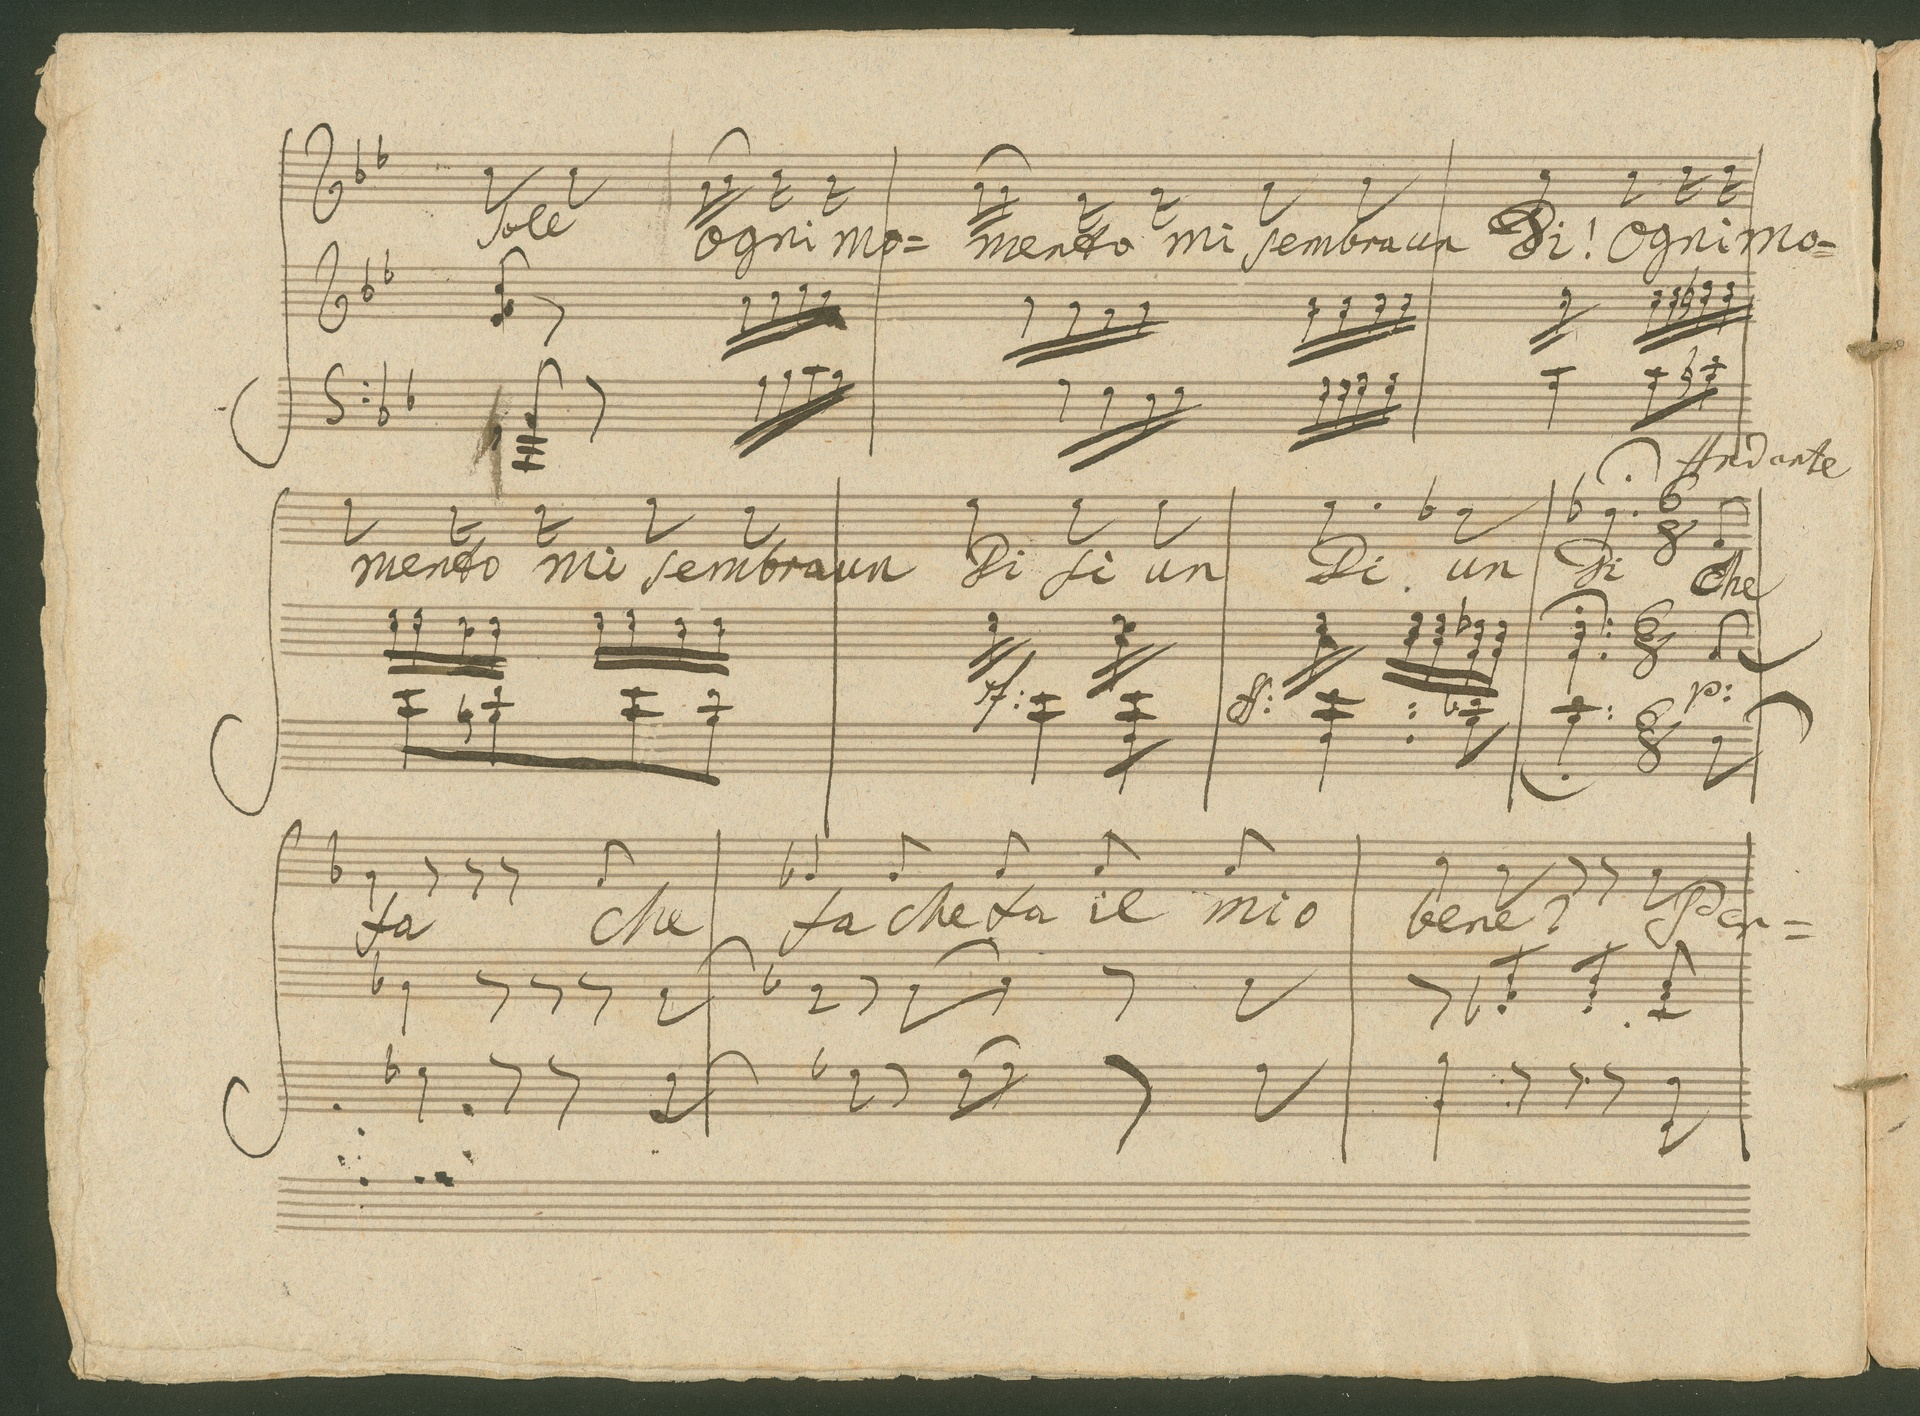 sole ogni mo= mento mi sembra un Di! ogni mo=
Andante
mento mi sembra un Di si un Di un Di che
sf: ff: p:
fa che fa che fa il mio bene? Per=